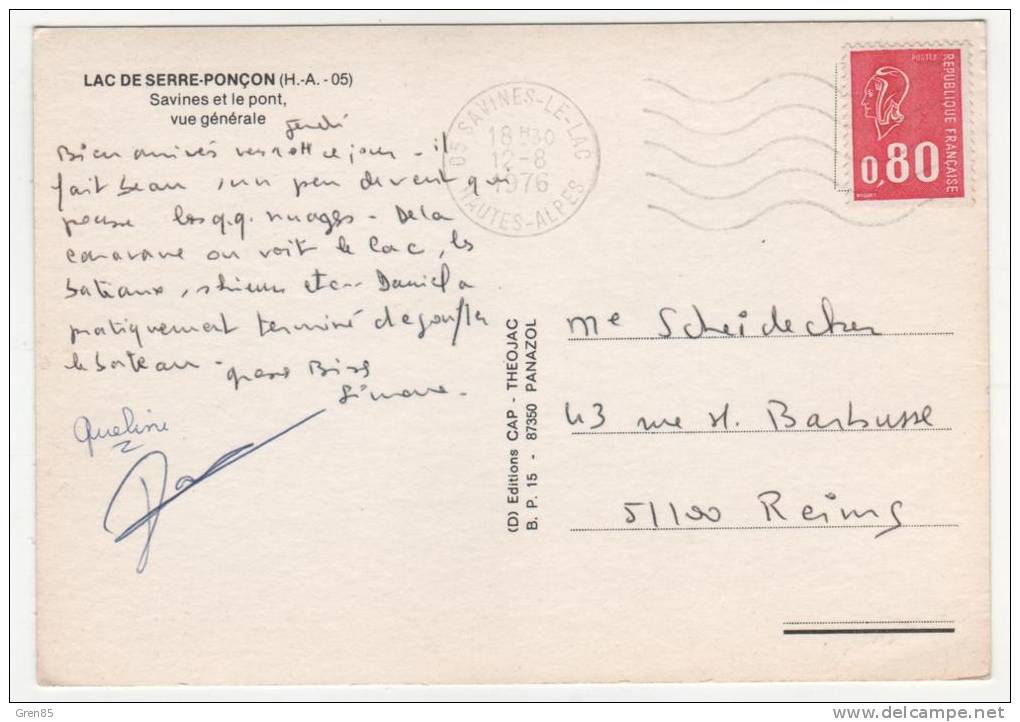 LAC DE SERRE-PONÇON (H.-A. - 05)
Savines et le pont,
vue générale
jeudi
Bien arrivés vers ce jour - il
fait beau, un peu de vent qui
pousse les q.q. nuages - De la
caravane on voit le lac, les
bateaux, skieurs etc - Daniel a
pratiquement terminé de gonfler
le bateau - grosses Bises
Simone -
05 SAVINES-LE-LAC
18 H30
12-8
1976
HAUTES-ALPES
POSTES
REPUBLIQUE FRANÇAISE
0,80
(D) Editions CAP - THEOJAC
B. P. 15 - 87350 PANAZOL
Me Scheidecker
43 rue H. Barbusse
51100 Reims
Gren85
delcampe.net